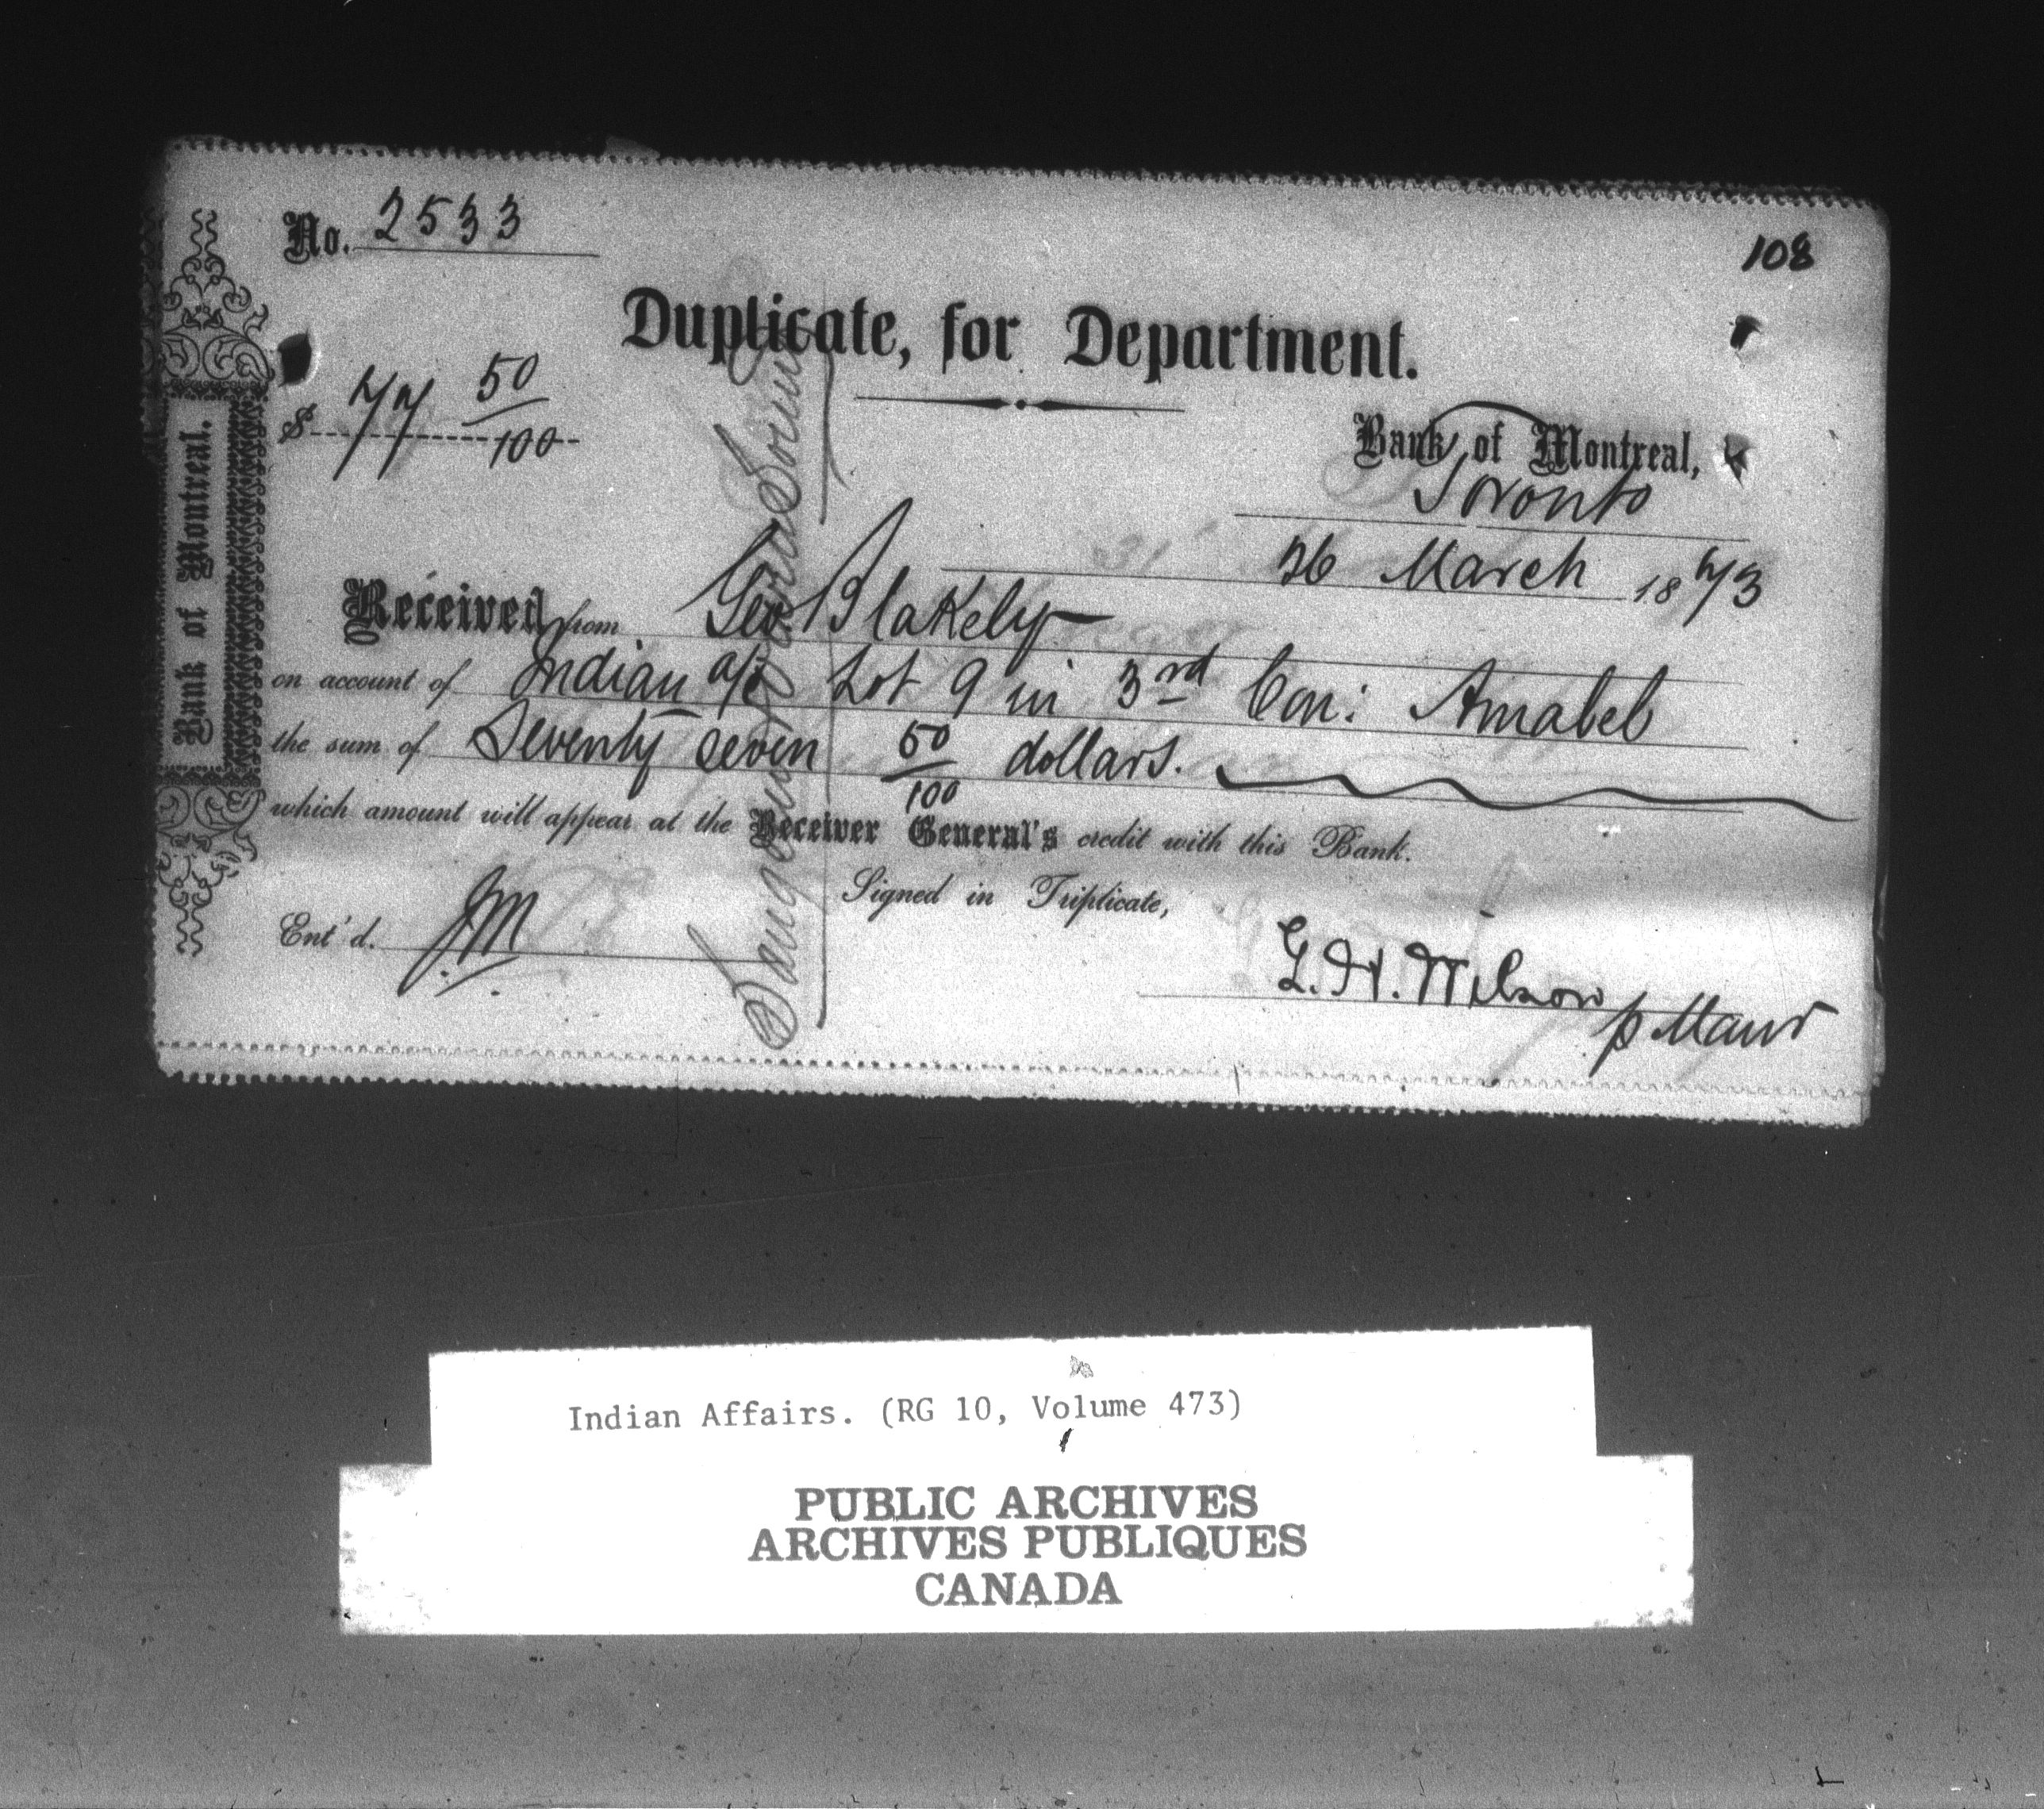 No. 2533
108
Duplicate, for Department.
$ 77 50/100
Bank of Montreal,
Toronto
26 March 1873
Received from Geo Blakely
on account of Indian a/c Lot 9 in 3rd Con: Amabel
the sum of Seventy seven 50/100 dollars.
which amount will appear at the Receiver General's credit with this Bank.
Signed in Triplicate,
Ent'd. JM
G. H. Wilson
p Man
Bank of Montreal.
Saugeen Owen Sound
Indian Affairs. (RG 10, Volume 473)
PUBLIC ARCHIVES
ARCHIVES PUBLIQUES
CANADA